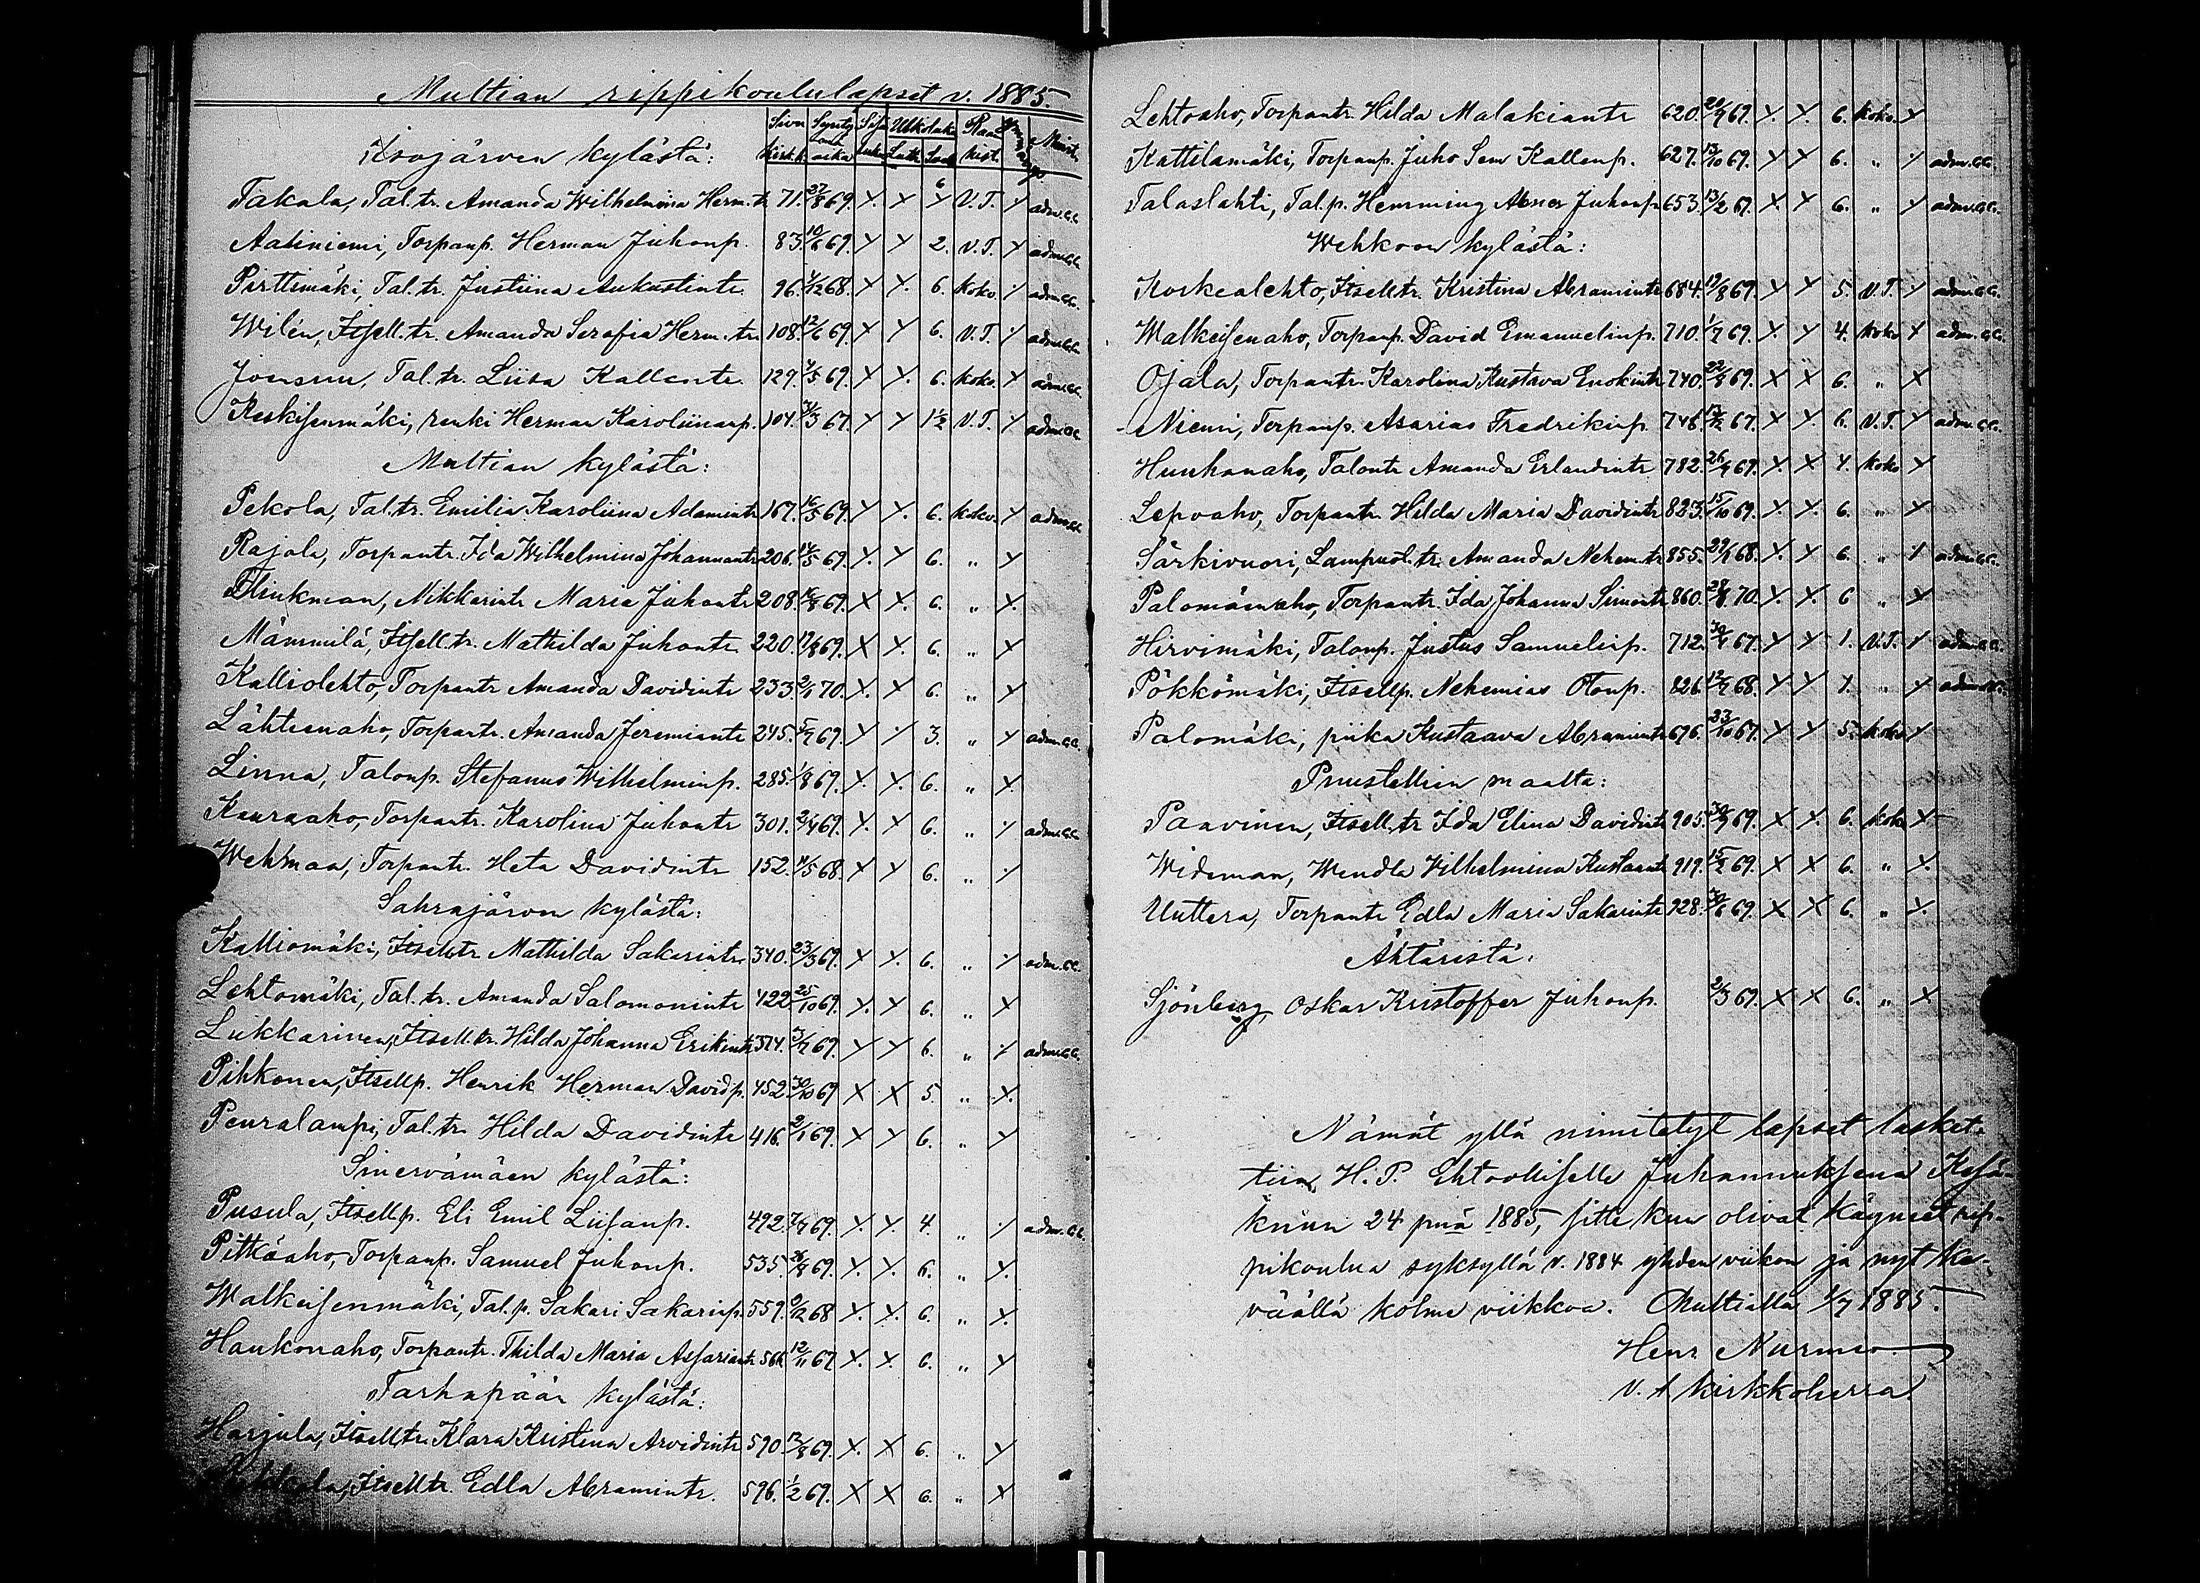 Multian rippikoululapset v. 1885.
Sivu kirk.k. Synty aika Sisä luku Ulkoluku Raa. kist. Ymmärrys Muist.
Isojärven kylästä:
Takala, Tal.tr. Amanda Wilhelmina Herm.tr. 71. 27/8 69. X. X 6 V.T. adm.c.c.
Aatiniemi, Torpanp. Herman Juhonp. 83. 10/6 69. X X 2. V.T. X adm.c.c.
Pirttimäki, Tal.tr. Justiina Aukustintr. 96. 4/12 68. X X. 6. koko. X adm.c.c.
Wilén, Itsell.tr. Amanda Serafia Herm.tr. 108. 12/6 69. X X 6. V.T. X adm.c.c.
Jonsuu, Tal.tr. Liisa Kallentr. 129. 4/5 69. X X. 6. koko. X adm.c.c.
Keskisenmäki, renki Herman Karoliinanp. 104. 31/3 67. X X 1½ V.T. X adm.c.c.
Multian kylästä:
Pekola, Tal.tr. Emilia Karoliina Adamintr. 167. 16/5 69. X X. 6. koko. X adm.c.c.
Rajala, Torpantr. Ida Wilhelmina Johannantr. 206. 14/5 69. X. X 6. „ X
Flinkman, Nikkarintr. Maria Juhontr. 208. 16/8 69. X X. 6. „ X.
Mämmilä, Itsell.tr. Mathilda Juhontr. 220. 17/8 69. X X. 6. „ X
Kalliolehto, Torpantr. Amanda Davidintr. 233. 2/1 70. X. X 6. „ X
Lähteenaho, Torpantr. Amanda Jeremiantr. 245. 5/9 69. X X 3. „ X adm.c.c.
Linna, Talonp. Stefanus Wilhelminp. 285. 1/8 69. X. X. 6. „ X.
Kauraaho, Torpantr. Karolina Juhontr. 301. 2/4 69. X. X 6. „ X adm.c.c.
Wehman, Torpantr. Heta Davidintr. 152. 11/5 68. X X 6. „ X
Sahrajärven kylästä:
Kalliomäki, Itsell.tr. Mathilda Sakarintr. 340. 23/3 69. X X. 6. „ X adm.c.c.
Lehtomäki, Tal.tr. Amanda Salomonintr. 422. 25/10 69. X. X 6. „ X
Liikkarinen, Itsell.tr. Hilda Johanna Erikintr. 374. 3/7 69. X X 6. „ X adm.c.c.
Pihkonen, Itsellp. Henrik Herman Davidp. 452. 30/10 69 X X 5. „ X.
Peuralampi, Tal.tr. Hilda Davidintr. 416. 2/1 69. X X 6. „ X
Sinervämäen kylästä:
Pusula, Itsellp. Eli Emil Liisanp. 492. 7/7 69. X. X. 4. „ X adm.c.c.
Pitkäaho, Torpanp. Samuel Juhonp. 535. 26/8 69. X. X. 6. „ X.
Walkeisenmäki, Tal.p. Sakari Sakarinp. 559. 9/12 68 X X. 6. „ X.
Haukonaho, Torpantr. Thilda Maria Assariantr. 566. 12/11 67 X. X. 6. „ X
Tarhapään kylästä:
Harjula, Itselltr. Klara Kristina Arvidintr. 590. 13/8 69. X. X 6. „ X
Itselltr. Edla Abramintr. 596. 1/2 69. X X 6. „ X
Lehtoaho, Torpantr. Hilda Malakiantr. 620. 20/9 69. X. X. 6. koko. X
Kattilamäki, Torpanp. Juho Sem Kallenp. 627. 13/10 69. X X 6. „ X adm.c.c.
Talaslahti, Tal.p. Hemming Abner Juhonp. 653. 13/2 67. X. X 6. „ X adm.c.c.
Wehkoon kylästä:
Korkealehto, Itselltr. Kristina Abramintr. 684. 19/8 69. X X 5. V.T. X adm.c.c.
Walkeisenaho, Torpanp. David Emanuelinp. 710. 1/7 69. X. X 4. koko X adm.c.c.
Ojala, Torpantr. Karolina Kustava Enokintr. 740. 22/8 69. X X 6. „ X
Niemi, Torpanp. Asarias Fredrikinp. 746. 17/12 67. X X. 6. V.T. X adm.c.c.
Huuhanaho, Talontr. Amanda Erlandintr. 782. 26/9 69. X. X 4. koko X
Lepoaho, Torpantr. Hilda Maria Davidintr. 823. 15/10 69. X. X. 6. „ X
Särkivuori, Lampuot.tr. Amanda Nehem.tr. 855. 29/1 68. X. X 6. „ X adm.c.c.
Palomäenaho, Torpantr. Ida Johanna Simontr. 860. 28/8 70. X. X. 6 „ X
Hirvimäki, Talonp. Justus Samuelinp. 712. 30/4 67. X X 1. V.T. X adm.c.c.
Pökkömäki, Itsellp. Nehemias Otonp. 826. 12/7 68. X X 1. „ X adm.c.c.
Palomäki, piika Kustaava Abramintr. 676. 23/10 67. X X 5. koko X
Pruustellin maalta:
Paavinen, Itsell.tr. Ida Elina Davidintr. 905. 30/9 69. X X. 6. koko X.
Wideman, Wendla Wilhelmina Kustaantr. 919. 15/2 69. X X 6. „ X.
Uuttera, Torpantr. Edla Maria Sakarintr. 928. 30/6 69. X X 6. „ X.
Ähtäristä:
Sjönberg, Oskar Kristoffer Juhonp. 2/3 69. X X 6. „ X
Nämät yllä nimitetyt lapset lasket-
tiin H. P. Ehtoolliselle Juhannuksena Kesä-
kuun 24 pnä 1885, sitte kun olivat käyneet rip-
pikoulua syksyllä v. 1884 yhden viikon ja nyt ke-
väällä kolme viikkoa. Multialla 1/7 1885.
Henr Nurmio
v. t. kirkkoherra.